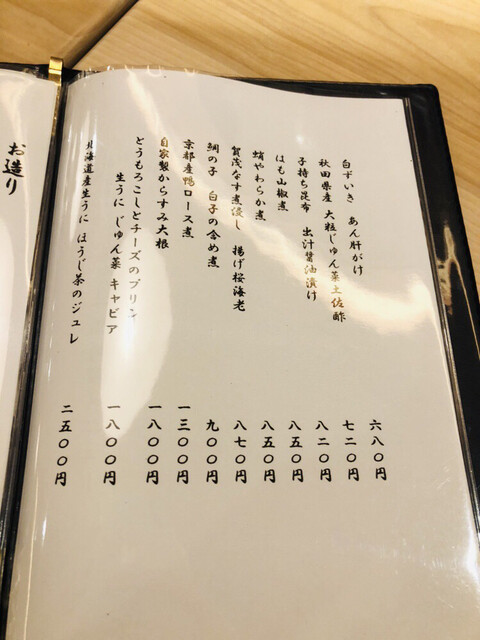 白ずいき あん肝がけ 六八〇円
秋田県産 大粒じゅん菜土佐酢 七二〇円
子持ち昆布 出汁醤油漬け 八二〇円
はも山椒煮 八五〇円
蛸やわらか煮 八五〇円
賀茂なす煮優し 揚げ桜海老 八七〇円
鯛の子 白子の含め煮 九〇〇円
京都産鴨ロース煮 一三〇〇円
自家製からすみ大根 一八〇〇円
とうもろこしとチーズのプリン
生うに じゅん菜 キャビア 一八〇〇円
北海道産生うに ほうじ茶のジュレ 二五〇〇円
お造り